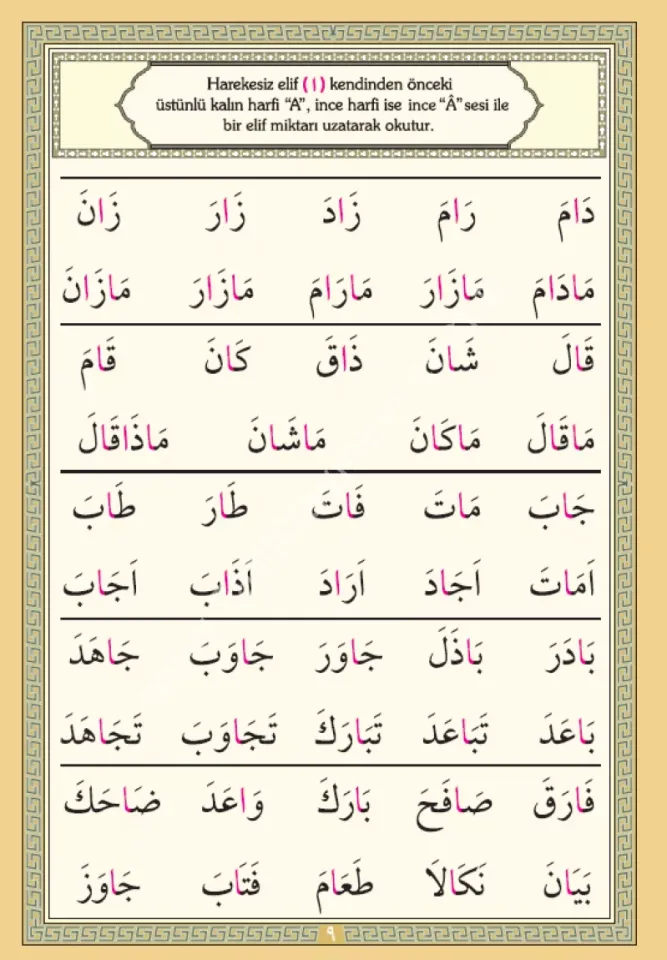 Harekesiz elif (ا) kendinden önceki
üstünlü kalın harfi “A”, ince harfi ise ince “Â” sesi ile
bir elif miktarı uzatarak okutur.
دَامَ رَامَ زَادَ زَارَ زَانَ
مَادَامَ مَازَارَ مَارَامَ مَازَارَ مَازَانَ
قَالَ شَانَ ذَاقَ كَانَ قَامَ
مَاقَالَ مَاكَانَ مَاشَانَ مَاذَاقَالَ
جَابَ مَاتَ فَاتَ طَارَ طَابَ
اَمَاتَ اَجَادَ اَرَادَ اَذَابَ اَجَابَ
بَادَرَ بَاذَلَ جَاوَرَ جَاوَبَ جَاهَدَ
بَاعَدَ تَبَاعَدَ تَبَارَكَ تَجَاوَبَ تَجَاهَدَ
فَارَقَ صَافَحَ بَارَكَ وَاعَدَ ضَاحَكَ
بَيَانَ نَكَالَا طَعَامَ فَتَابَ جَاوَزَ
٩